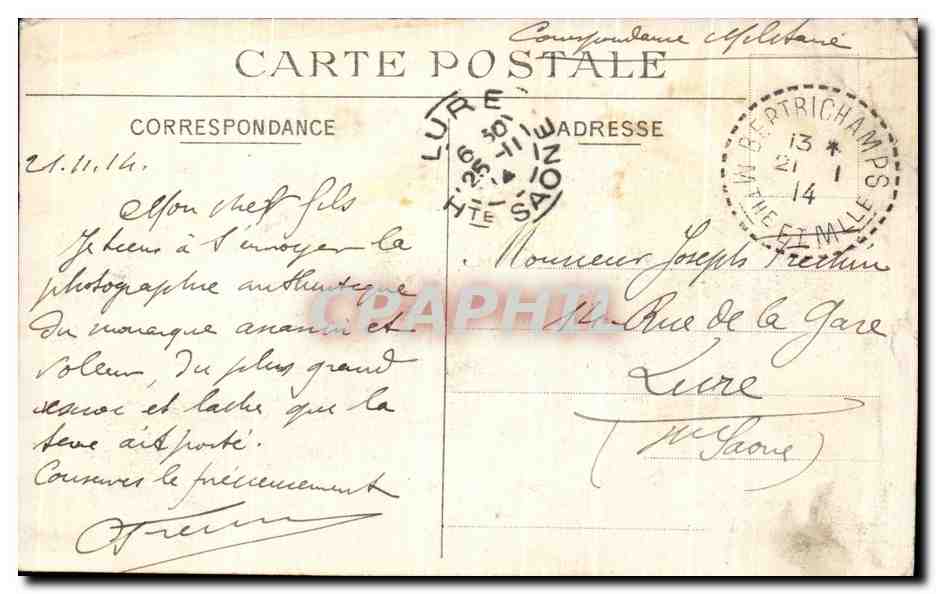 Correspondance Militaire
CARTE POSTALE
CORRESPONDANCE
ADRESSE
LURE
6 30
25 -11
14
HTE SAONE
BERTRICHAMPS
13 *
21 1
14
M THE ET MLLE
21.11.14.
Mon cher fils
Je tiens à t'envoyer la
photographie authentique
du monarque assassin et
voleur, du plus grand
escroc et lache que la
terre ait porté.
Conserves le précieusement
Monsieur Joseph
14 Rue de la Gare
Lure
(Hte Saone)
CPAPHIL